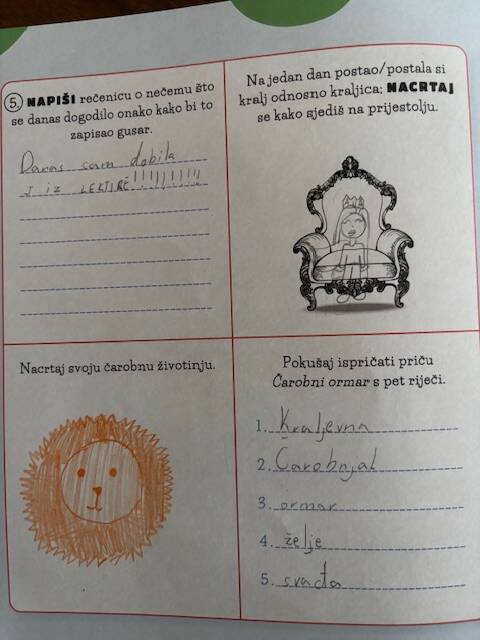 5. NAPIŠI rečenicu o nečemu što
se danas dogodilo onako kako bi to
zapisao gusar.
Danas sam dobila
5 iz LEKTIRE!!!!!!!!!!
Na jedan dan postao/postala si
kralj odnosno kraljica; NACRTAJ
se kako sjediš na prijestolju.
Nacrtaj svoju čarobnu životinju.
Pokušaj ispričati priču
Čarobni ormar s pet riječi.
1. Kraljevna
2. Čarobnjak
3. ormar
4. želje
5. svađa